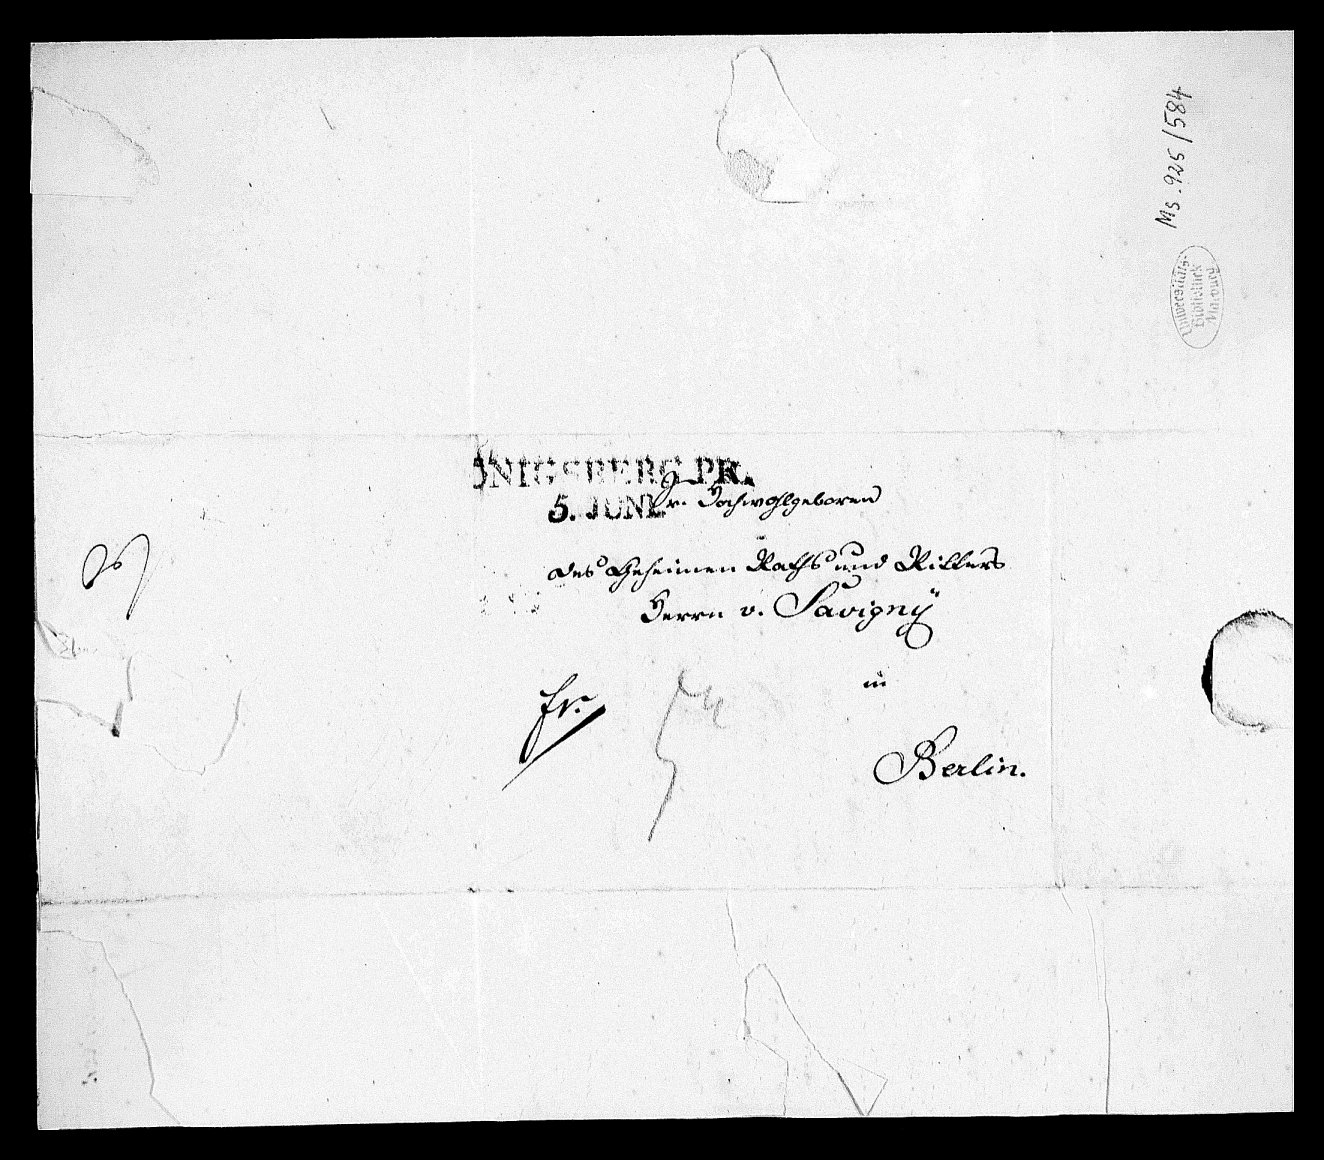 Ms. 925/584
Universitäts-
Bibliothek
Marburg
ÖNIGSBERG PR.
5. JUNI
Sr. Hochwohlgeboren
des Geheimen Raths und Ritters
Herrn v. Savigny
in
Berlin.
fr.